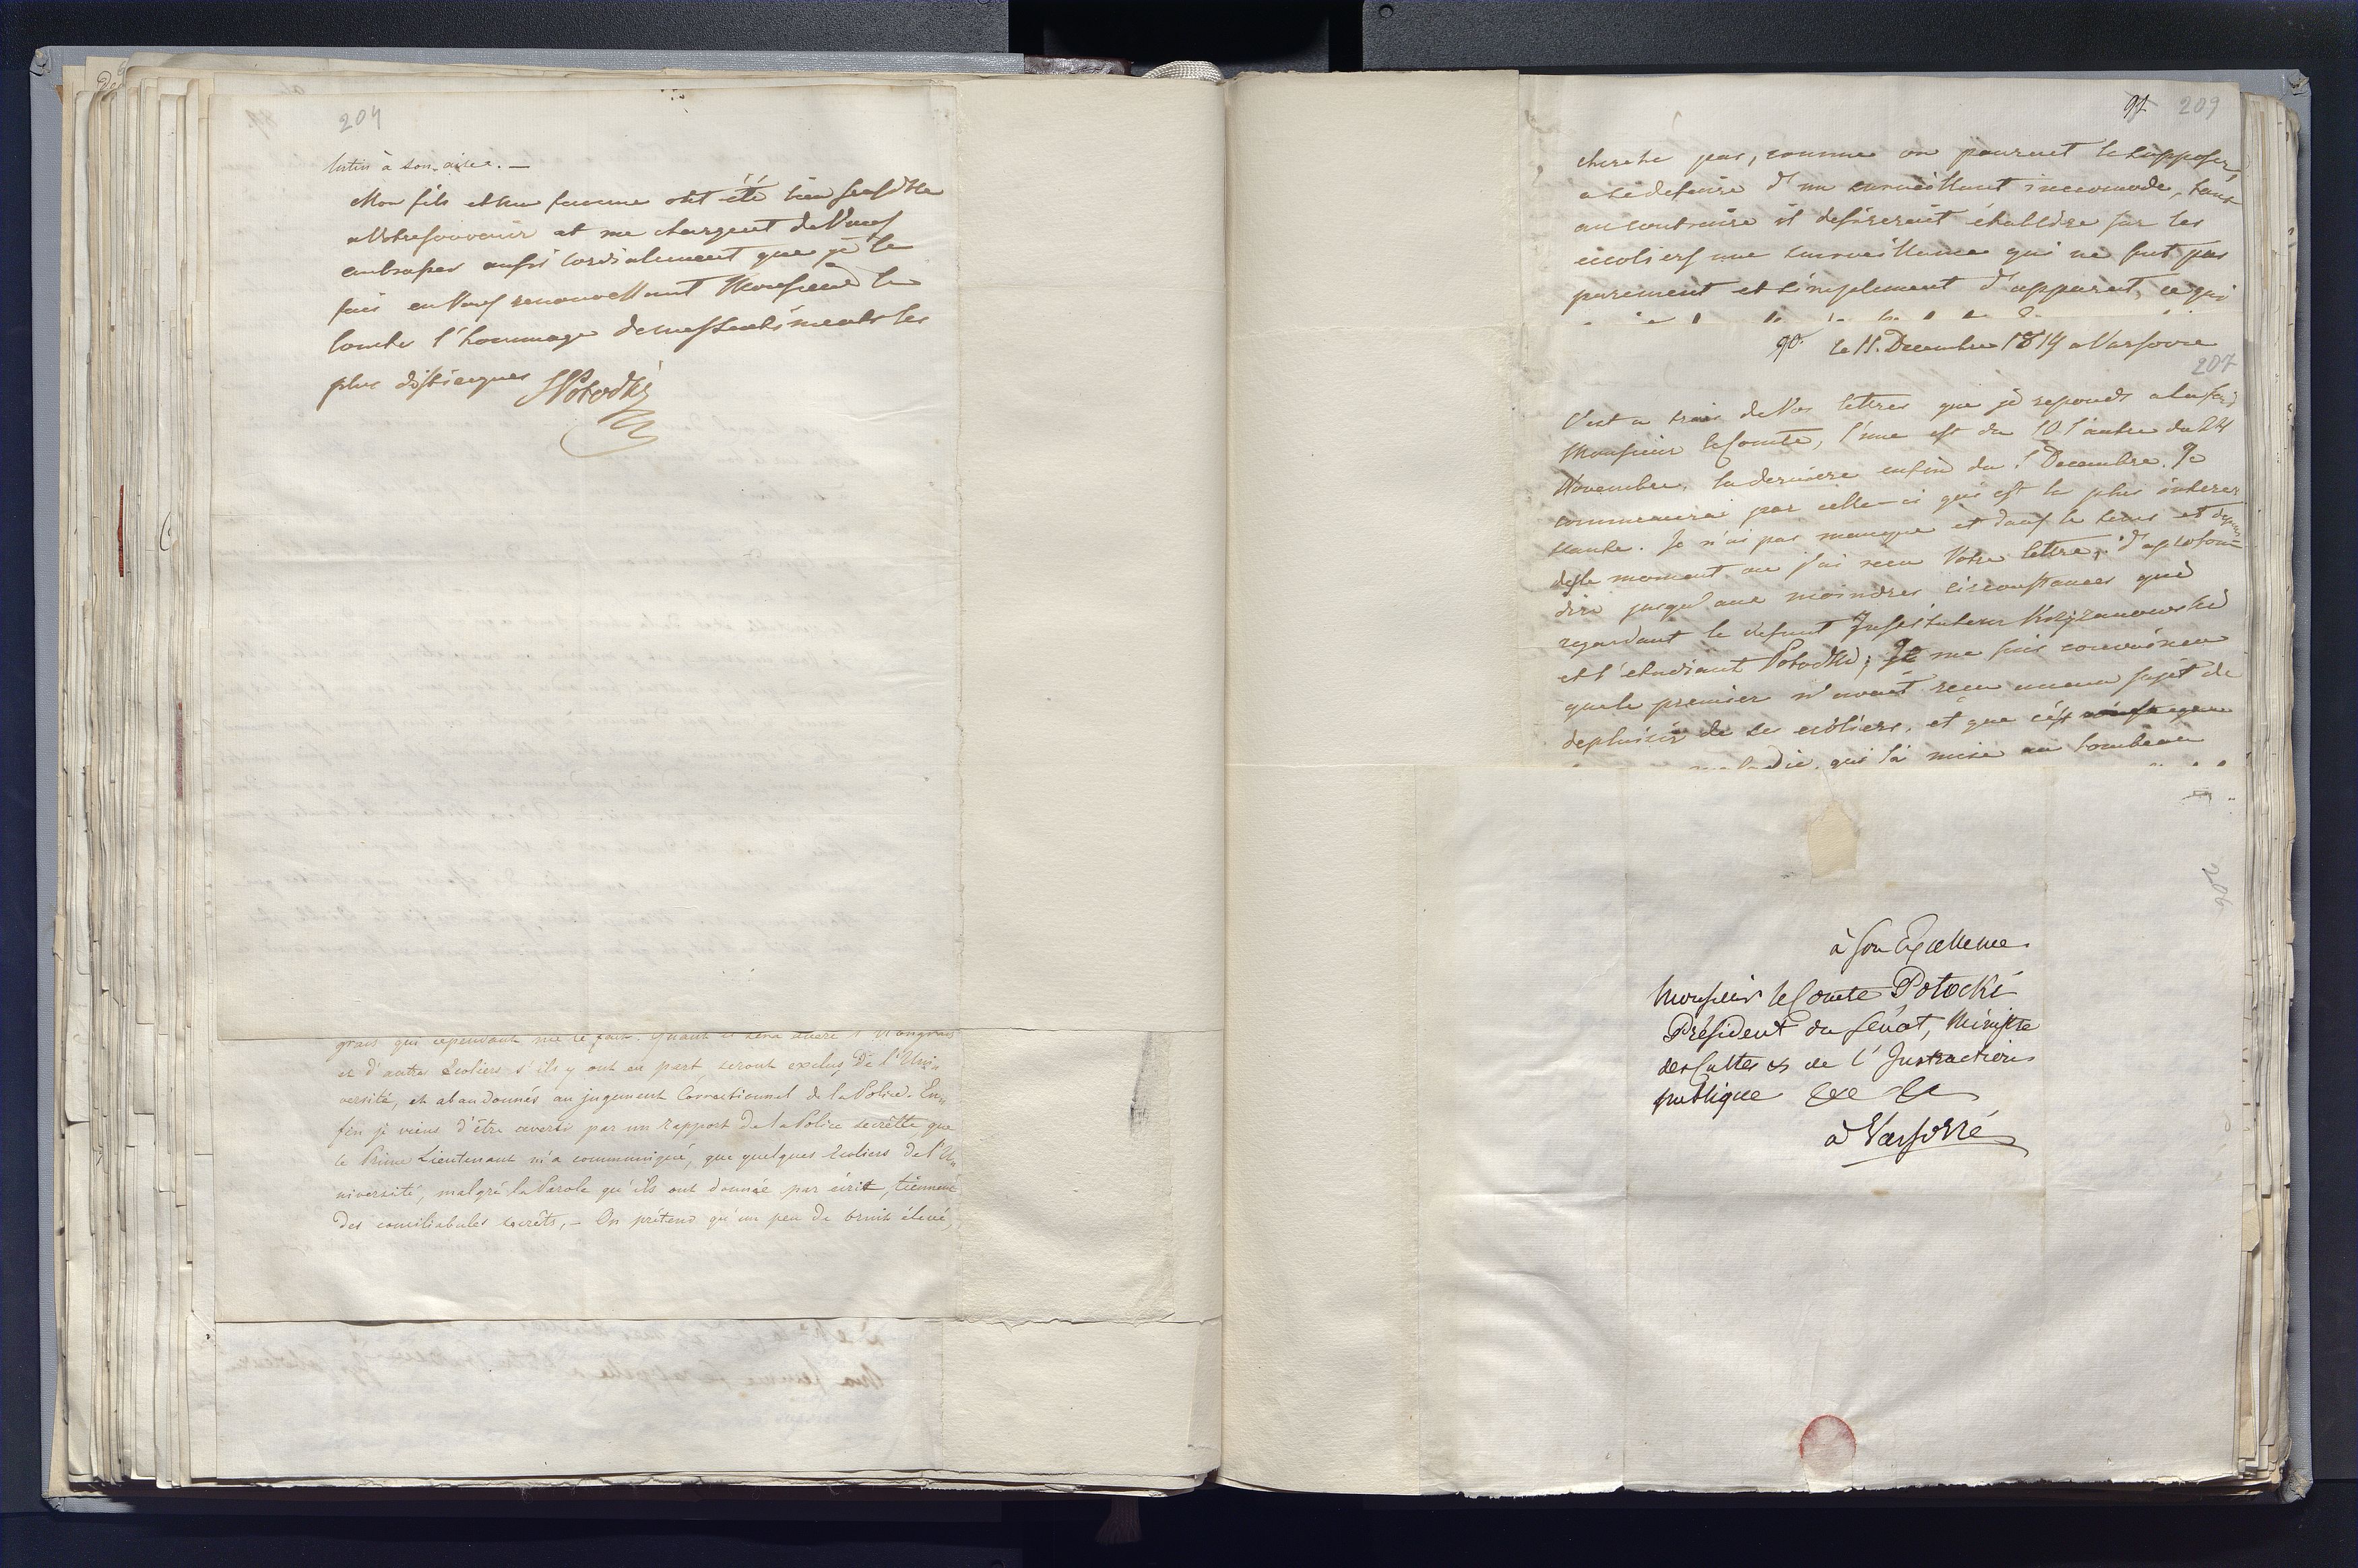 204
à son aise. —
Mon fils et ma femme ont été bien sensible
a Votre souvenir et me chargent de Vous
embrasser aussi cordialement que je le
fais en Vous renouvellant Monsieur le
Comte l'hommage de mes sentiments les
plus distingues SPotocki
grais qui cependant nie le fait. Quant
et d'autre Ecoliers s'ils y ont eu part, seront exclus de l'Uni„
versité, et abandonnés au jugement Correctionnel de la Police. En„
fin je viens d'être averti par un rapport de la Police secrètte que
le Prince Lieutenant m'a communiqué, que quelques Ecoliers de l'U„
niversité, malgré la Parole qu'ils ont donnée par écrit, tiennent
des conciliabules secrêts, — On prétend qu'un peu de bruit élevé,
91 209
cherche pas, comme on pourroit le supposer
a se defaire d'un surveillant incomode, tout
au contraire il desireroit établire sur les
ecoliers une surveillance qui ne fut pas
purement et simplement d'apparat, ce qui
90. le 11. Decembre 1819 a Varsovie
207
C'est a trois de Vos lettres que je reponds a la fois
Monsieur le Comte, l'une est du 10 l'autre du 24
Novembre, la derniere enfin du 1 Decembre. Je
commencerai par celle-ci qui est la plus interes
sante. Je n'ai pas manque et dans le tems et depuis
le moment ou j'ai recu Votre lettre, d'aprofon=
dire jusqu'aux moindres circonstances que
regardant le defunt Instituteur Krzyzanowski
et l'etudiant Potocki; Je me suis convaincu
que le premier n'avoit recu aucun sujet de
deplaisir de ses ecoliers, et que c'est
qui l'a mise au tombeau
206
à Son Excellence
Monsieur le Comte Potocki
Président du Sénat, Ministre
des Cultes & de l'Instruction
publique &c &c
à Varsovie